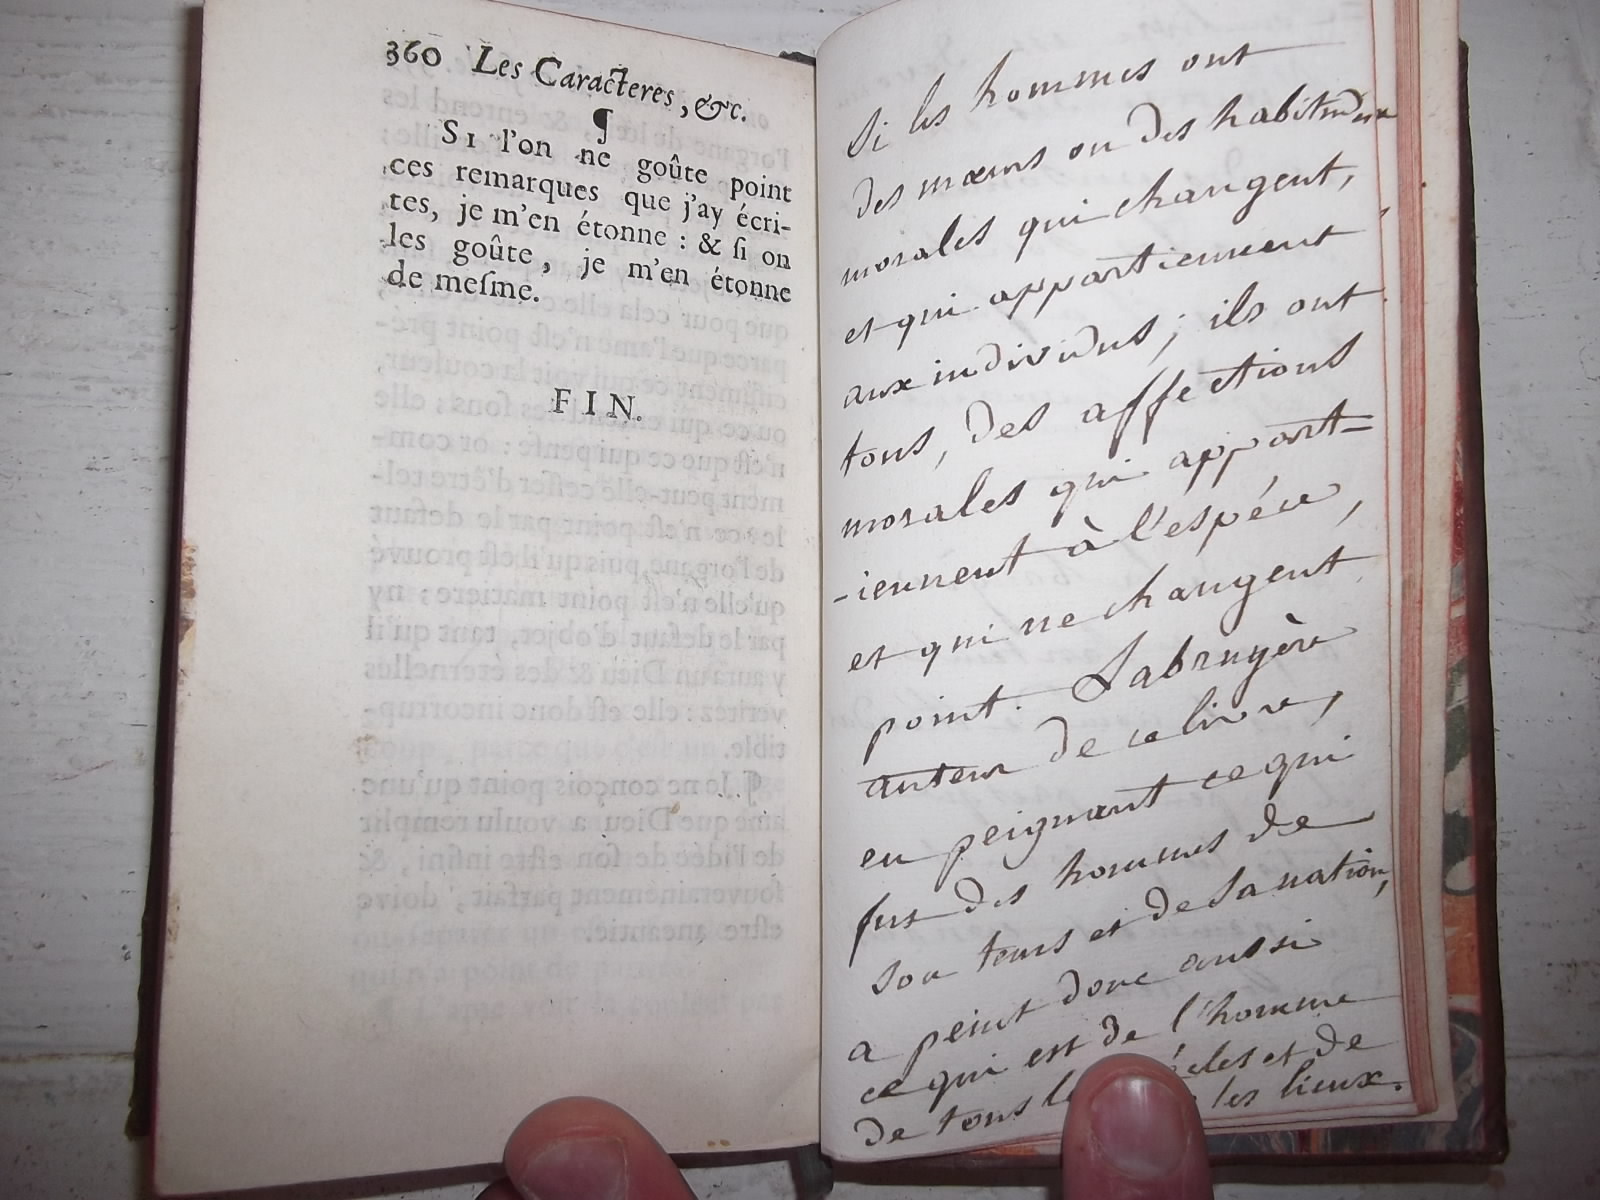 360 Les Caracteres, &c.
¶
SI l'on ne goûte point
ces remarques que j'ay écri-
tes, je m'en étonne : & ſi on
les goûte, je m'en étonne
de meſme.
FIN.
Si les hommes ont
des mœurs ou des habitudes
morales qui changent,
et qui appartiennent
aux individus ; ils ont
tous, des affections
morales qui appart=
-iennent à l'espéce,
et qui ne changent
point. Labruyère
auteur de ce livre,
en peignant ce qui
fut des hommes de
son tems et de sa nation,
a peint donc aussi
ce qui est de l'homme
de tous les siécles et de
les lieux.